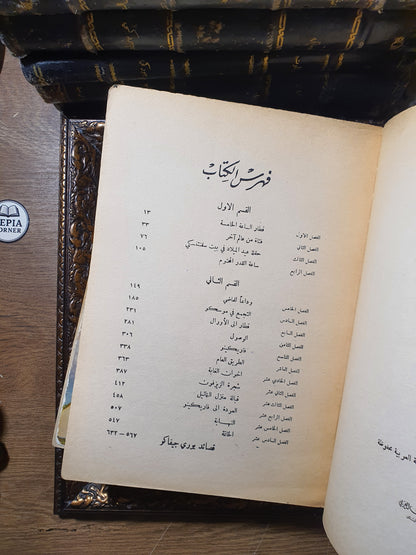 فهرس الكتاب
القسم الاول
الفصل الاول قطار الساعة الخامسة ١٣
الفصل الثاني فتاة من عالم آخر ٣٣
الفصل الثالث حفلة عيد الميلاد في بيت سفنتسكي ٧٦
الفصل الرابع ساعة القدر المحتوم ١٠٥
القسم الثاني
الفصل الخامس وداعاً للماضي ١٤٩
الفصل السادس التجمع في موسكو ١٨٥
الفصل السابع قطار الى الأورال ٢٣١
الفصل الثامن الوصول ٢٨١
الفصل التاسع فاريكينو ٣٠٦
الفصل العاشر الطريق العام ٣٣٨
الفصل الحادي عشر اخوان الغابة ٣٦٣
الفصل الثاني عشر شجرة الزيزفون ٣٨٧
الفصل الثالث عشر قبالة منزل التماثيل ٤١٢
الفصل الرابع عشر العودة الى فاريكينو ٤٥٨
الفصل الخامس عشر النهاية ٥٠٧
الفصل السادس عشر الخاتمة ٥٤٧
قصائد يوري جيفاكو ٥٦٧ – ٦٣٢
EPIA
ORNER
ة العربية محفوظة